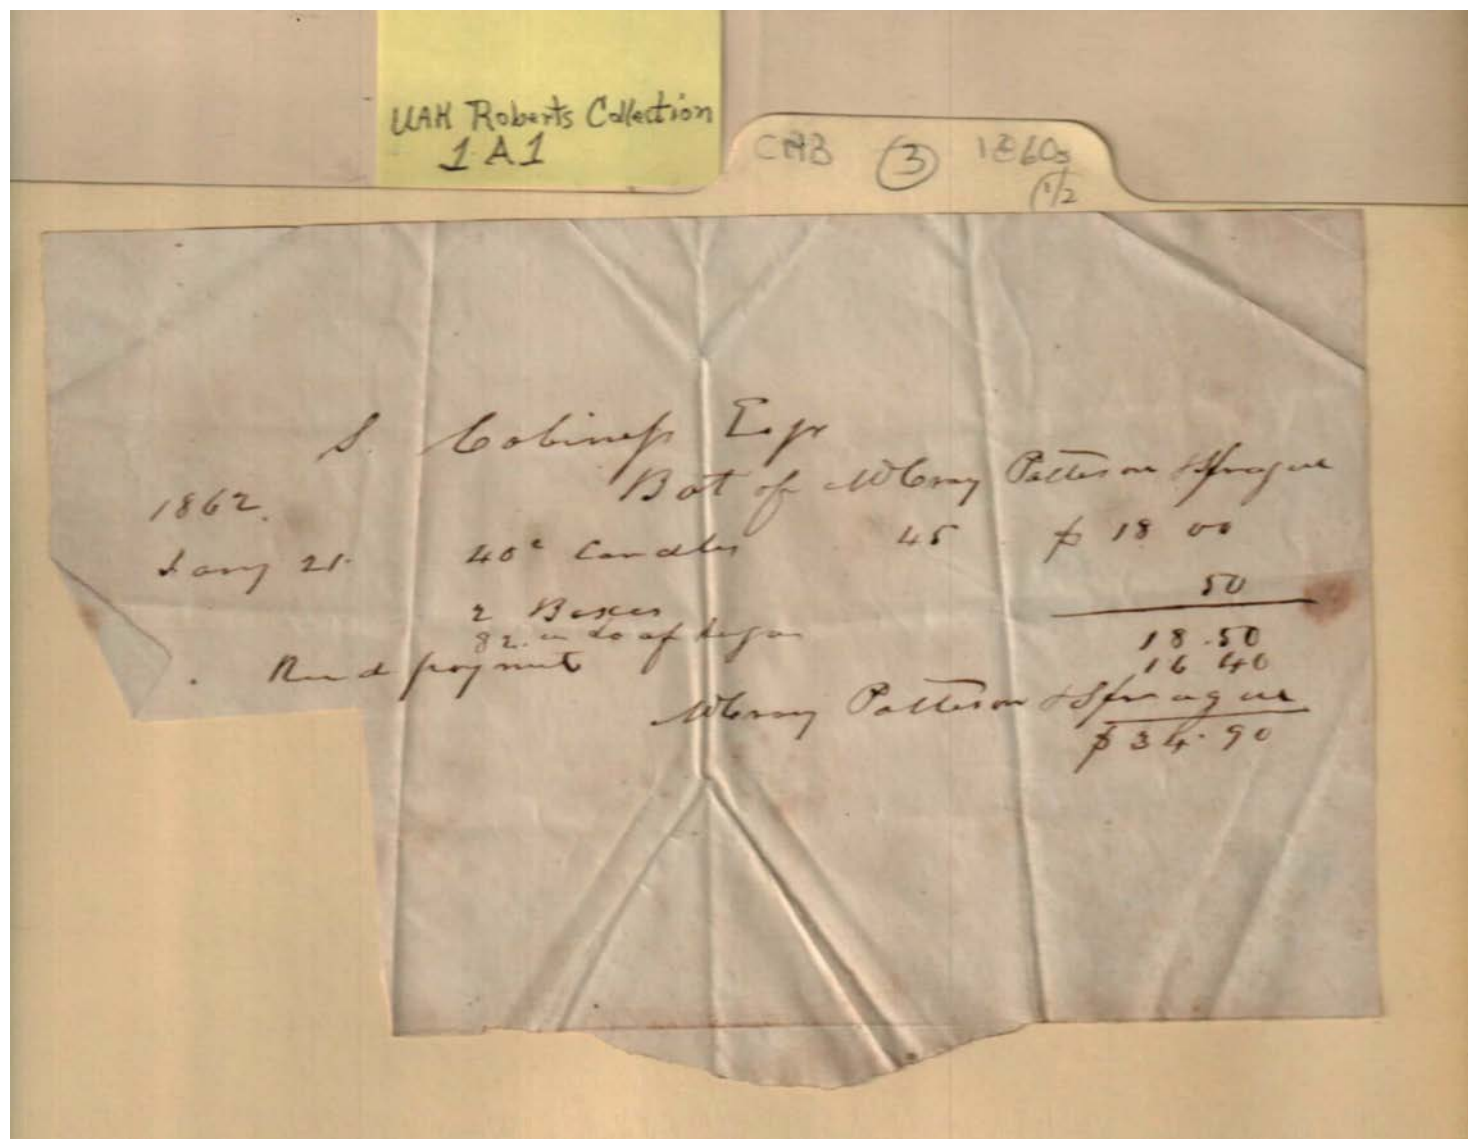 UAH Roberts Collection
1 A1
CAB 3 1860s
1/2
S. Cabiness Esqr
Bot of McCray Patteson & Sprague
1862.
Jany 21. 40 Candles 45 $ 18 00
2 Boxes 50
18.50
82. Loaf Sugar 16 40
payment
McCray Patteson & Sprague
$34.90